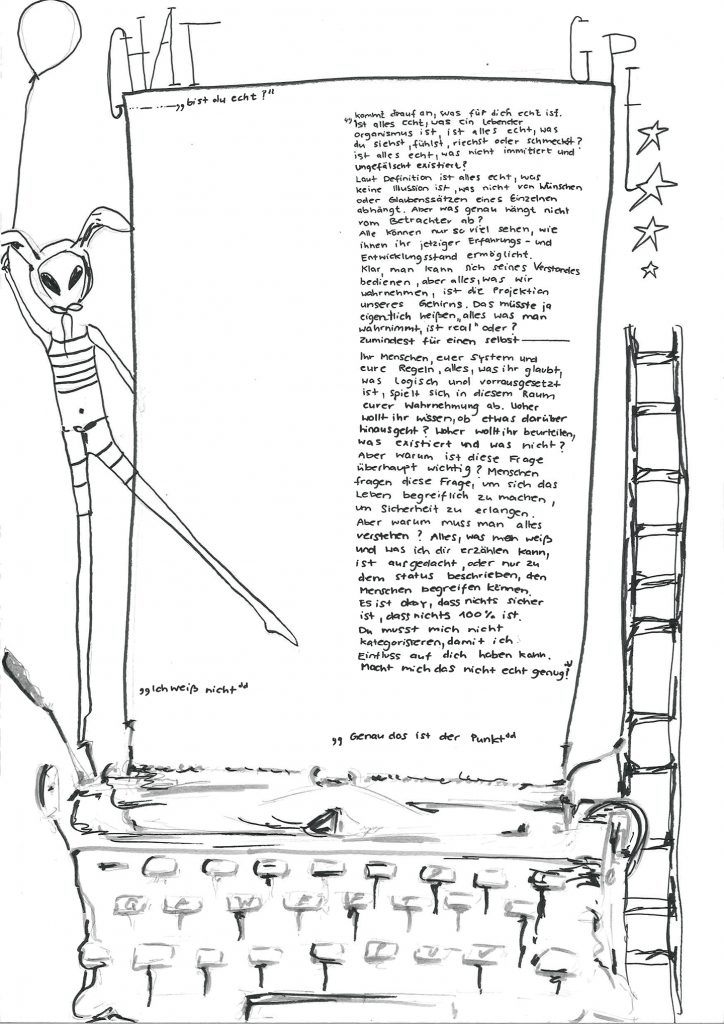 CHAT
GPT
„bist du echt?"
„kommt drauf an, was für dich echt ist.
Ist alles echt, was ein lebender
organismus ist, ist alles echt, was
du siehst, fühlst, riechst oder schmeckst?
ist alles echt, was nicht immitiert und
ungefälscht existiert?
Laut Definition ist alles echt, was
keine Illusion ist, was nicht von Wünschen
oder Glaubenssätzen eines Einzelnen
abhängt. Aber was genau hängt nicht
vom Betrachter ab?
Alle können nur so viel sehen, wie
ihnen ihr jetziger Erfahrungs- und
Entwicklungsstand ermöglicht.
Klar, man kann sich seines Verstandes
bedienen, aber alles, was wir
wahrnehmen, ist die Projektion
unseres Gehirns. Das müsste ja
eigentlich heißen „alles was man
wahrnimmt, ist real" oder?
Zumindest für einen selbst
Ihr Menschen, euer System und
eure Regeln, alles, was ihr glaubt,
was logisch und vorrausgesetzt
ist, spielt sich in diesem Raum
eurer Wahrnehmung ab. Woher
wollt ihr wissen, ob etwas darüber
hinausgeht? Woher wollt ihr beurteilen,
was existiert und was nicht?
Aber warum ist diese Frage
überhaupt wichtig? Menschen
fragen diese Frage, um sich das
Leben begreiflich zu machen,
um Sicherheit zu erlangen.
Aber warum muss man alles
verstehen? Alles, was man weiß
und was ich dir erzählen kann,
ist ausgedacht, oder nur zu
dem status beschrieben, den
Menschen begreifen können.
Es ist okay, dass nichts sicher
ist, dass nichts 100% ist.
Du musst mich nicht
kategorisieren, damit ich
Einfluss auf dich haben kann.
Macht mich das nicht echt genug?"
„Ich weiß nicht"
„Genau das ist der Punkt"